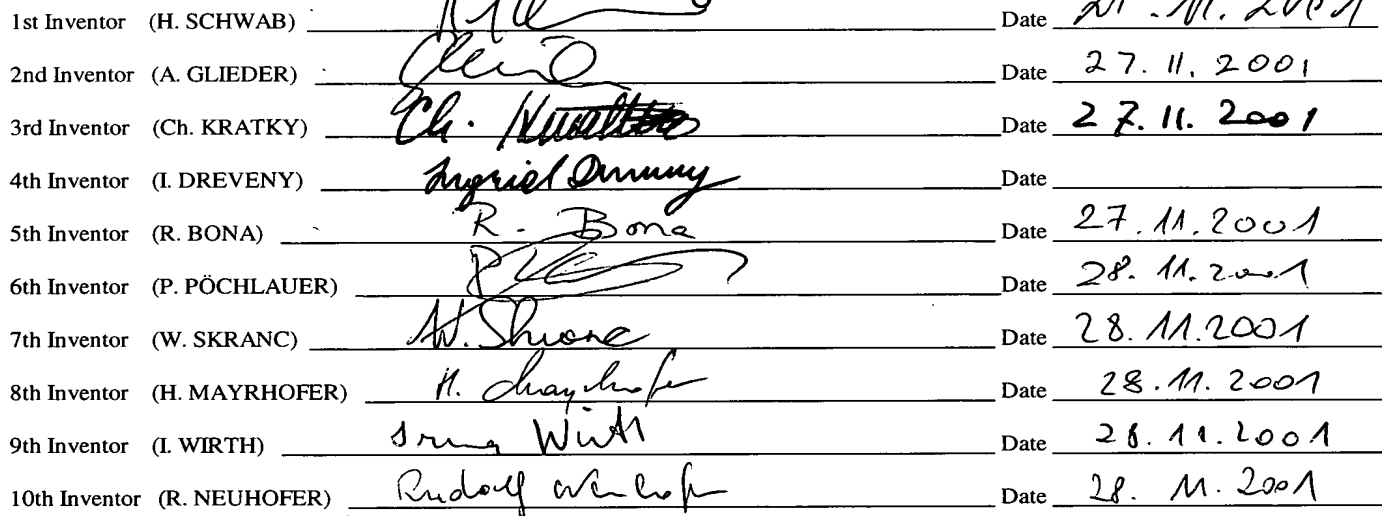 1st Inventor (H. SCHWAB) Date .11.2001
2nd Inventor (A. GLIEDER) Date 27.11.2001
3rd Inventor (Ch. KRATKY) Ch. Date 27.11.2001
4th Inventor (I. DREVENY) Ingrid Dreveny Date
5th Inventor (R. BONA) R. Bona Date 27.11.2001
6th Inventor (P. PÖCHLAUER) Date 28.11.2001
7th Inventor (W. SKRANC) W. Skranc Date 28.11.2001
8th Inventor (H. MAYRHOFER) H. Mayrhofer Date 28.11.2001
9th Inventor (I. WIRTH) Irma Wirth Date 28.11.2001
10th Inventor (R. NEUHOFER) Rudolf Neuhofer Date 28. 11. 2001